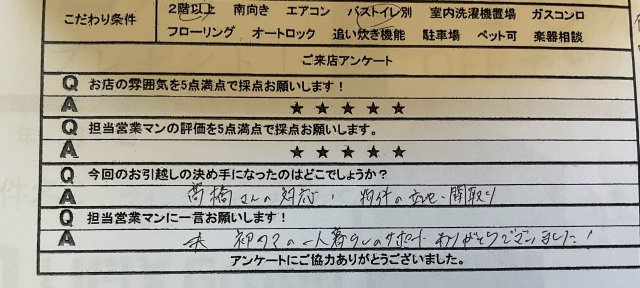 こだわり条件
2階以上 南向き エアコン バストイレ別 室内洗濯機置場 ガスコンロ
フローリング オートロック 追い炊き機能 駐車場 ペット可 楽器相談
ご来店アンケート
Q お店の雰囲気を5点満点で採点お願いします!
A ★ ★ ★ ★ ★
Q 担当営業マンの評価を5点満点で採点お願いします。
A ★ ★ ★ ★ ★
Q 今回のお引越しの決め手になったのはどこでしょうか?
A 高橋さんの対応, 物件の立地・間取り
Q 担当営業マンに一言お願いします!
A 初めての一人暮らしのサポートありがとうございました!
アンケートにご協力ありがとうございました。